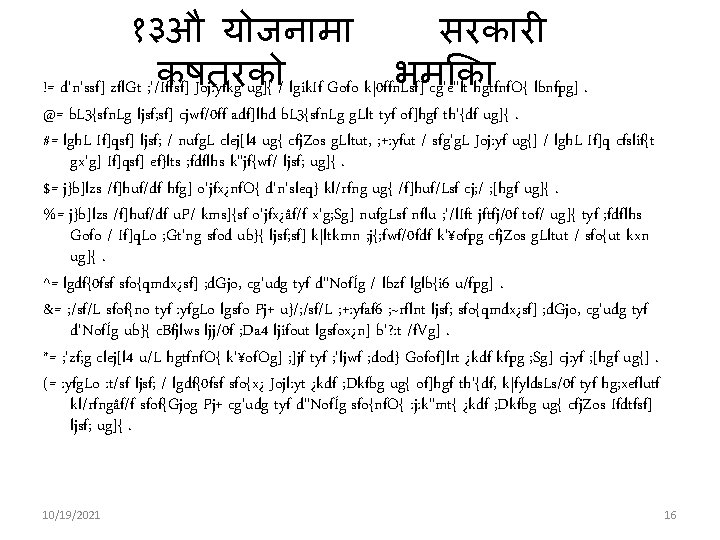 १३औ योजनामा सरकारी
कषतरको भमिका
!= d'n'ssf] zflGt ;'/Iffsf] Joj:yfkg ug]{ / lgikIf Gofo k|0ffnLsf] cg'e"lt hgtfnfO{ lbnfpg] .
@= bL3{sfnLg ljsf;sf] cjwf/0ff adf]lhd bL3{sfnLg gLlt tyf of]hgf th'{df ug]{ .
#= lghL If]qsf] ljsf; / nufgL clej[l4 ug{ cfjZos gLltut, ;+:yfut / sfg'gL Joj:yf ug{] / lghL If]q cfslif{t
gx'g] If]qsf] ef}lts ;fdflhs k"jf{wf/ ljsf; ug]{ .
$= j}b]lzs /f]huf/df hfg] o'jfx¿nfO{ d'n'sleq} kl/rfng ug{ /f]huf/Lsf cj;/ ;[hgf ug]{ .
%= j}b]lzs /f]huf/df uP/ kms]{sf o'jfx¿åf/f x'g;Sg] nufgLsf nflu ;'/lIft jftfj/0f tof/ ug]{ tyf ;fdflhs
Gofo / If]qLo ;Gt'ng sfod ub}{ ljsf;sf] k|ltkmn ;j{;fwf/0fdf k'¥ofpg cfjZos gLltut / sfo{ut kxn
ug]{ .
^= lgdf{0fsf sfo{qmdx¿sf] ;dGjo, cg'udg tyf d"NofÍg / lbzf lglb{i6 u/fpg] .
&= ;/sf/L sfof{no tyf :yfgLo lgsfo Pj+ u}/;/sf/L ;+:yfaf6 ;~rflnt ljsf; sfo{qmdx¿sf] ;dGjo, cg'udg tyf
d'NofÍg ub}{ cBfjlws ljj/0f ;Da4 ljifout lgsfox¿n] b'?:t /fVg] .
*= ;'zf;g clej[l4 u/L hgtfnfO{ k'¥ofOg] ;]jf tyf ;'ljwf ;dod} Gofof]lrt ¿kdf kfpg ;Sg] cj:yf ;[hgf ug{] .
(= :yfgLo :t/sf ljsf; / lgdf{0fsf sfo{x¿ Jojl:yt ¿kdf ;Dkfbg ug{ of]hgf th'{df, k|fyldsLs/0f tyf hg;xeflutf
kl/rfngåf/f sfof{Gjog Pj+ cg'udg tyf d"NofÍg sfo{nfO{ :j:k"mt{ ¿kdf ;Dkfbg ug{ cfjZos Ifdtfsf]
ljsf; ug]{ .
10/19/2021 16